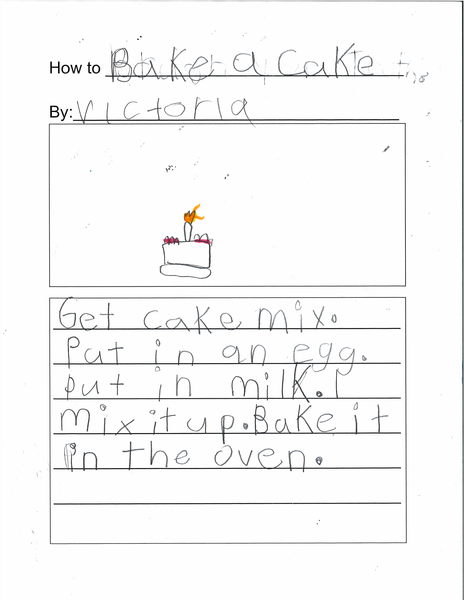 How to Bake a Cake
By: Victoria
Get cake mix.
Put in an egg.
put in milk.
mix it up. Bake it
in the oven.